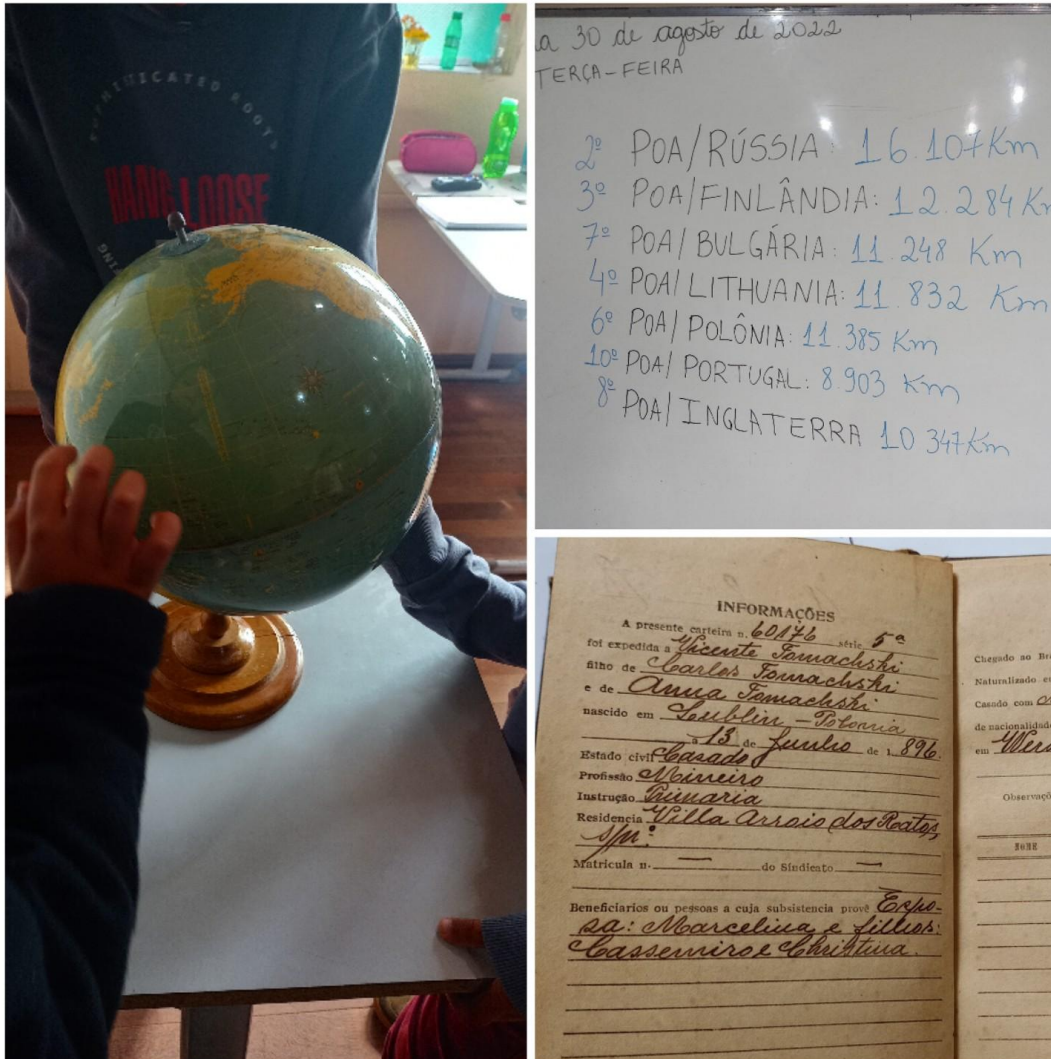 HANG LOOSE
a 30 de agosto de 2022
TERÇA-FEIRA
2º POA/RÚSSIA: 16.107Km
3º POA/FINLÂNDIA: 12.284 Km
7º POA/BULGÁRIA: 11.248 Km
4º POA/LITHUANIA: 11.832 Km
6º POA/POLÔNIA: 11.385 Km
10º POA/PORTUGAL: 8.903 Km
8º POA/INGLATERRA 10 347Km
INFORMAÇÕES
A presente carteira n. 60176 série 5ª
foi expedida a Vicente Tomachski
filho de Carlos Tomachski
e de Anna Tomachski
nascido em Lublin - Polonia
a 13 de Junho de 1.896.
Estado civil Casado
Profissão Mineiro
Instrução Primaria
Residencia Villa Arroio dos Ratos,
s/nº
Matricula n. — do Sindicato —
Beneficiarios ou pessoas a cuja subsistencia provê Espo-
sa: Marcelina e filhos:
Cassemiro e Christina.
Chegado ao Bra
Naturalizado e
Casado com
de nacionalidade
em
Observaçõ
NOME